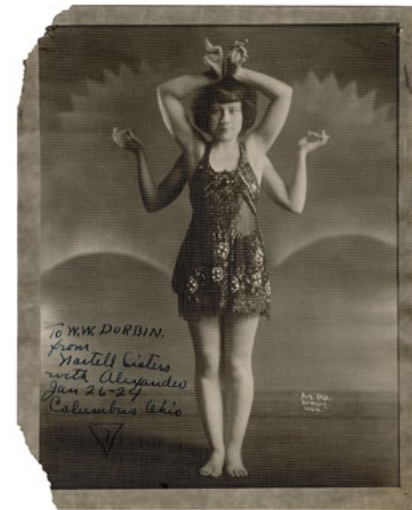 To W.W. DURBIN.
from
Martell Sisters
with Alexander
Jan 26-24
Columbus Ohio